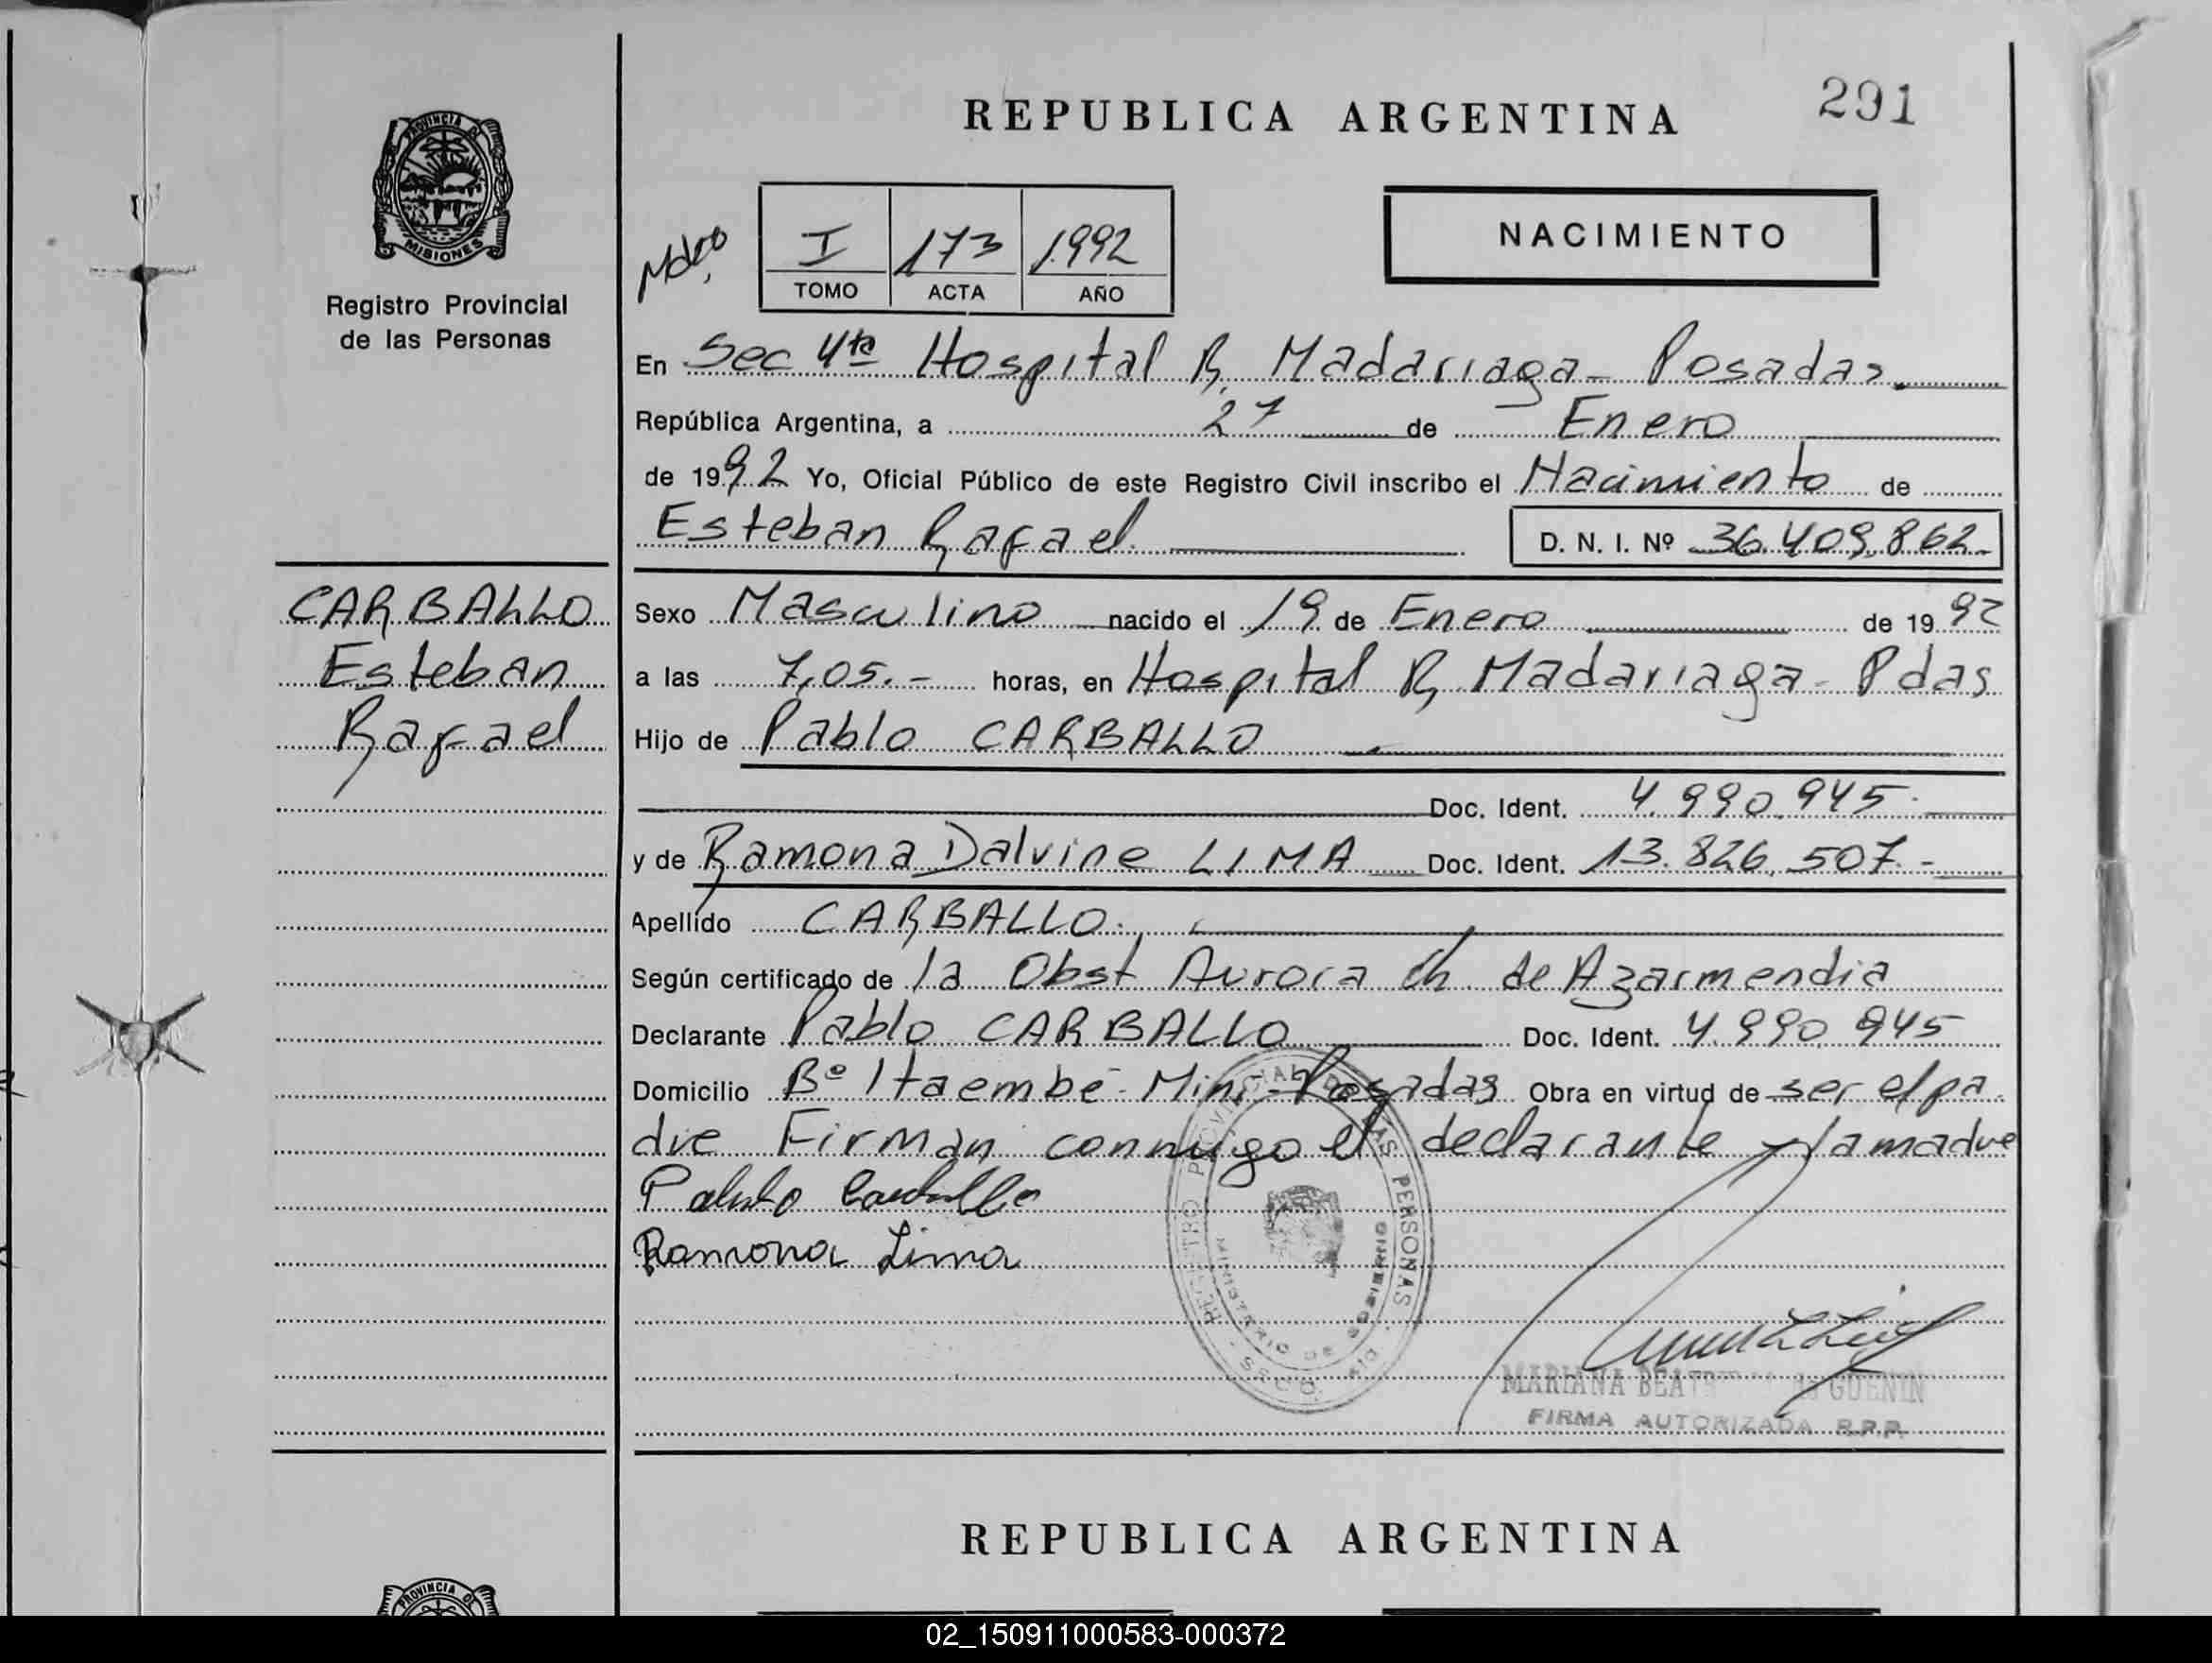 REPUBLICA ARGENTINA
291
PROVINCIA DE
MISIONES
Registro Provincial
de las Personas
NACIMIENTO
I 173 1992
TOMO ACTA AÑO
En Sec 4ta Hospital R. Madariaga - Posadas.
República Argentina, a 27 de Enero
de 1992 Yo, Oficial Público de este Registro Civil inscribo el Nacimiento de
Esteban Rafael D. N. I. Nº 36.409.862
CARBALLO
Esteban
Rafael
Sexo Masculino nacido el 19 de Enero de 1992
a las 7,05.- horas, en Hospital R. Madariaga - Pdas
Hijo de Pablo CARBALLO
Doc. Ident. 4.990.945.
y de Ramona Dalvine LIMA Doc. Ident. 13.826.507.-
Apellido CARBALLO.
Según certificado de la Obst Aurora Ch. de Azarmendia
Declarante Pablo CARBALLO Doc. Ident. 4.990.945
Domicilio Bº Itaembé - Mini - Posadas Obra en virtud de ser el pa
dre Firman conmigo el declarante y la madre
Pablo Carballo
Ramona Lima
REGISTRO PROVINCIAL DE LAS PERSONAS
MINISTERIO DE GOBIERNO
MARIANA BEATRIZ de GUENIN
FIRMA AUTORIZADA R.P.P.
REPUBLICA ARGENTINA
PROVINCIA DE
02_150911000583-000372